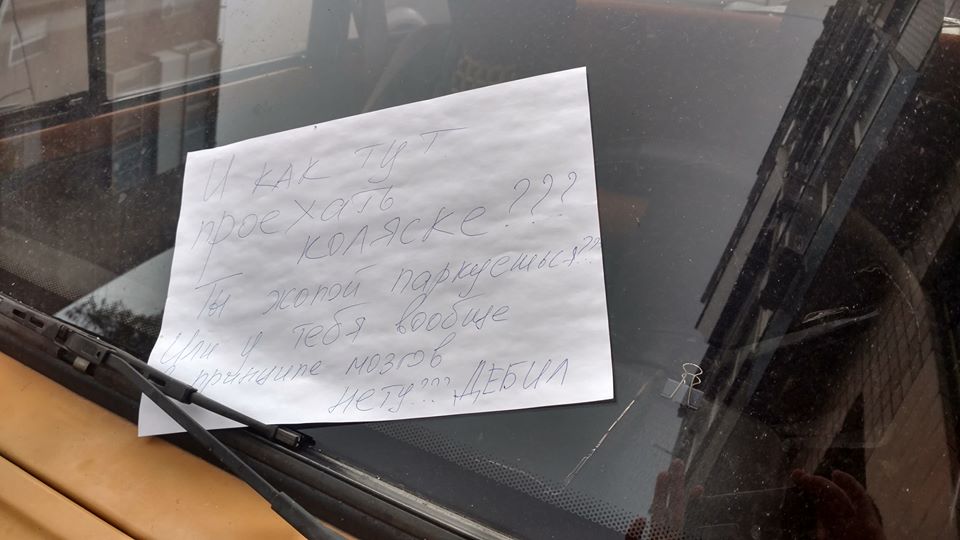 И как тут
проехать
коляске???
Ты жопой паркуешься??
Или у тебя вообще
в принципе мозгов
нету??? ДЕБИЛ